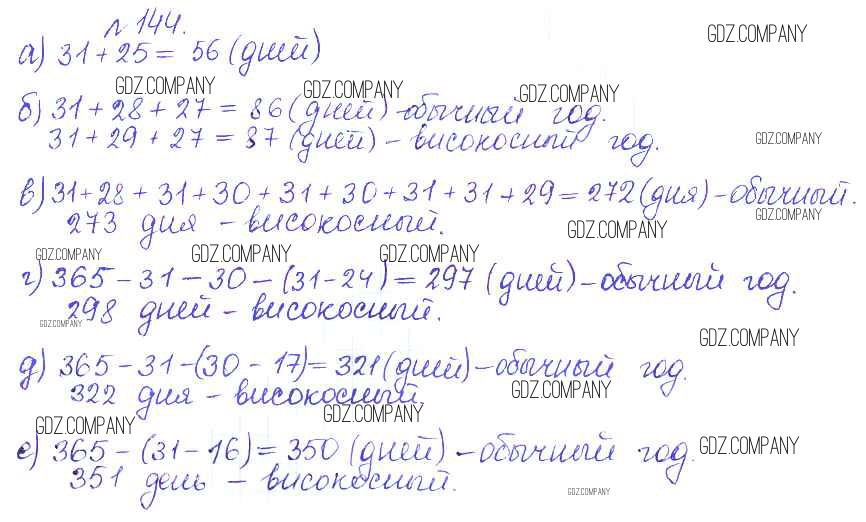 № 144.
а) 31 + 25 = 56 (дней)
GDZ.COMPANY
GDZ.COMPANY GDZ.COMPANY GDZ.COMPANY
б) 31 + 28 + 27 = 86 (дней) - обычный год.
31 + 29 + 27 = 87 (дней) - високосный год.
GDZ.COMPANY
в) 31 + 28 + 31 + 30 + 31 + 30 + 31 + 31 + 29 = 272 (дня) - обычный.
GDZ.COMPANY
273 дня - високосный.
GDZ.COMPANY
GDZ.COMPANY GDZ.COMPANY GDZ.COMPANY
г) 365 - 31 - 30 - (31 - 24) = 297 (дней) - обычный год.
298 дней - високосный.
GDZ.COMPANY
GDZ.COMPANY
д) 365 - 31 - (30 - 17) = 321 (дней) - обычный год.
322 дня - високосный,
GDZ.COMPANY
GDZ.COMPANY GDZ.COMPANY
е) 365 - (31 - 16) = 350 (дней) - обычный год.
GDZ.COMPANY
351 день - високосный.
GDZ.COMPANY